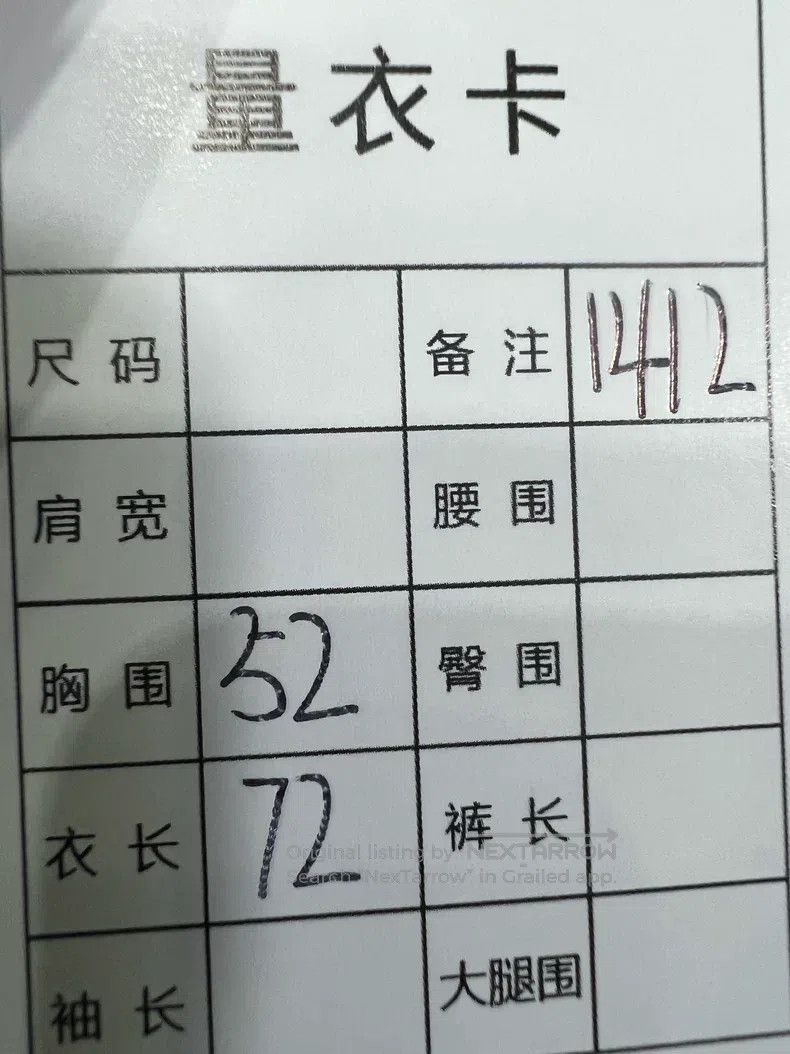 量衣卡
尺码 备注 1412
肩宽 腰围
胸围 52 臀围
衣长 72 裤长
Original listing by NEXTARROW
Search "NexTarrow" in Grailed app.
袖长 大腿围